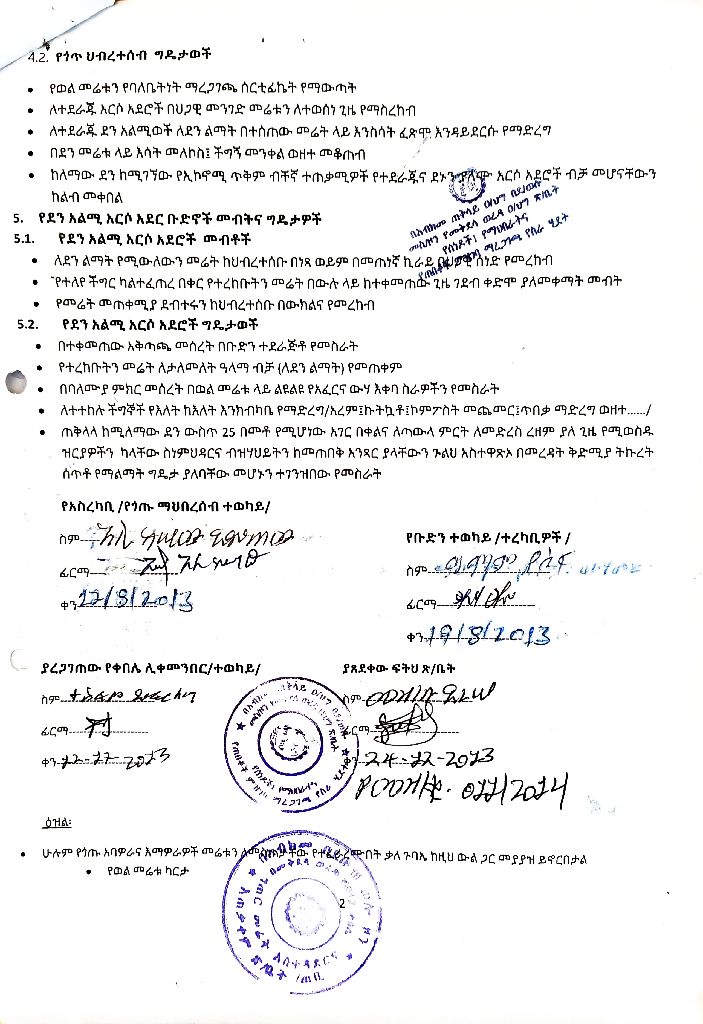 4.2. የጎጥ ህብረተሰብ ግዴታወች
• የወል መሬቱን የባለቤትነት ማረጋገጫ ሰርቲፊኬት የማውጣት
• ለተደራጁ አርሶ አደሮች በህጋዊ መንገድ መሬቱን ለተወሰነ ጊዜ የማስረከብ
• ለተደራጁ ደን አልሚወች ለደን ልማት በተሰጠው መሬት ላይ እንስሳት ፈጽሞ እንዳይደርሱ የማድረግ
• በደን መሬቱ ላይ እሳት መለኮስ፤ ችግኝ መንቀል ወዘተ መቆጠብ
• ከለማው ደን ከሚገኘው የኢኮኖሚ ጥቅም ብቸኛ ተጠቃሚዎች የተደራጁና ደኑን ያለሙ አርሶ አደሮች ብቻ መሆናቸውን
ከልብ መቀበል
5. የደን አልሚ አርሶ አደር ቡድኖች መብትና ግዴታዎች
5.1. የደን አልሚ አርሶ አደሮች መብቶች
• ለደን ልማት የሚውለውን መሬት ከህብረተሰቡ በነጻ ወይም በመጠነኛ ኪራይ በህጋዊ ሰነድ የመረከብ
• የተለየ ችግር ካልተፈጠረ በቀር የተረከቡትን መሬት በውሉ ላይ ከተቀመጠው ጊዜ ገደብ ቀድሞ ያለመቀማት መብት
• የመሬት መጠቀሚያ ደብተሩን ከህብረተስቡ በውክልና የመረከብ
5.2. የደን አልሚ አርሶ አደሮች ግዴታወች
• በተቀመጠው አቅጣጫ መሰረት በቡድን ተደራጅቶ የመስራት
• የተረከቡትን መሬት ለታለመለት ዓላማ ብቻ (ለደን ልማት) የመጠቀም
• በባለሙያ ምክር መሰረት በወል መሬቱ ላይ ልዩልዩ የአፈርና ውሃ እቀባ ስራዎችን የመስራት
• ለተተከሉ ችግኞች የእለት ከእለት እንክብካቤ የማድረግ/አረም፤ኩትኳቶ፤ኮምፖስት መጨመር፤ጥበቃ ማድረግ ወዘተ....../
• ጠቅላላ ከሚለማው ደን ውስጥ 25 በመቶ የሚሆነው አገር በቀልና ለጣውላ ምርት ለመድረስ ረዘም ያለ ጊዜ የሚወስዱ
ዝርያዎችን ካላቸው ስነምህዳርና ብዝሃይትን ከመጠበቅ አንጻር ያላቸውን ጉልህ አስተዋጽኦ በመረዳት ቅድሚያ ትኩረት
ሰጥቶ የማልማት ግዴታ ያለባቸው መሆኑን ተገንዝበው የመስራት
የአስረካቢ /የጎጡ ማህበረሰብ ተወካይ/
ስም
ፊርማ
ቀን 12/8/2013
የቡድን ተወካይ /ተረካቢዎች /
ስም
ፊርማ
ቀን 19/8/2013
ያረጋገጠው የቀበሌ ሊቀመንበር/ተወካይ/
ስም
ፊርማ
ቀን
ያጸደቀው ፍትህ ጽ/ቤት
ስም
ፊርማ
ቀን
ዕዝል፡
• ሁሉም የጎጡ አባዎራና እማዎራዎች መሬቱን ለመስጠታቸው የተፈራረሙበት ቃለ ጉባኤ ከዚህ ውል ጋር መያያዝ ይኖርበታል
• የወል መሬቱ ካርታ
2